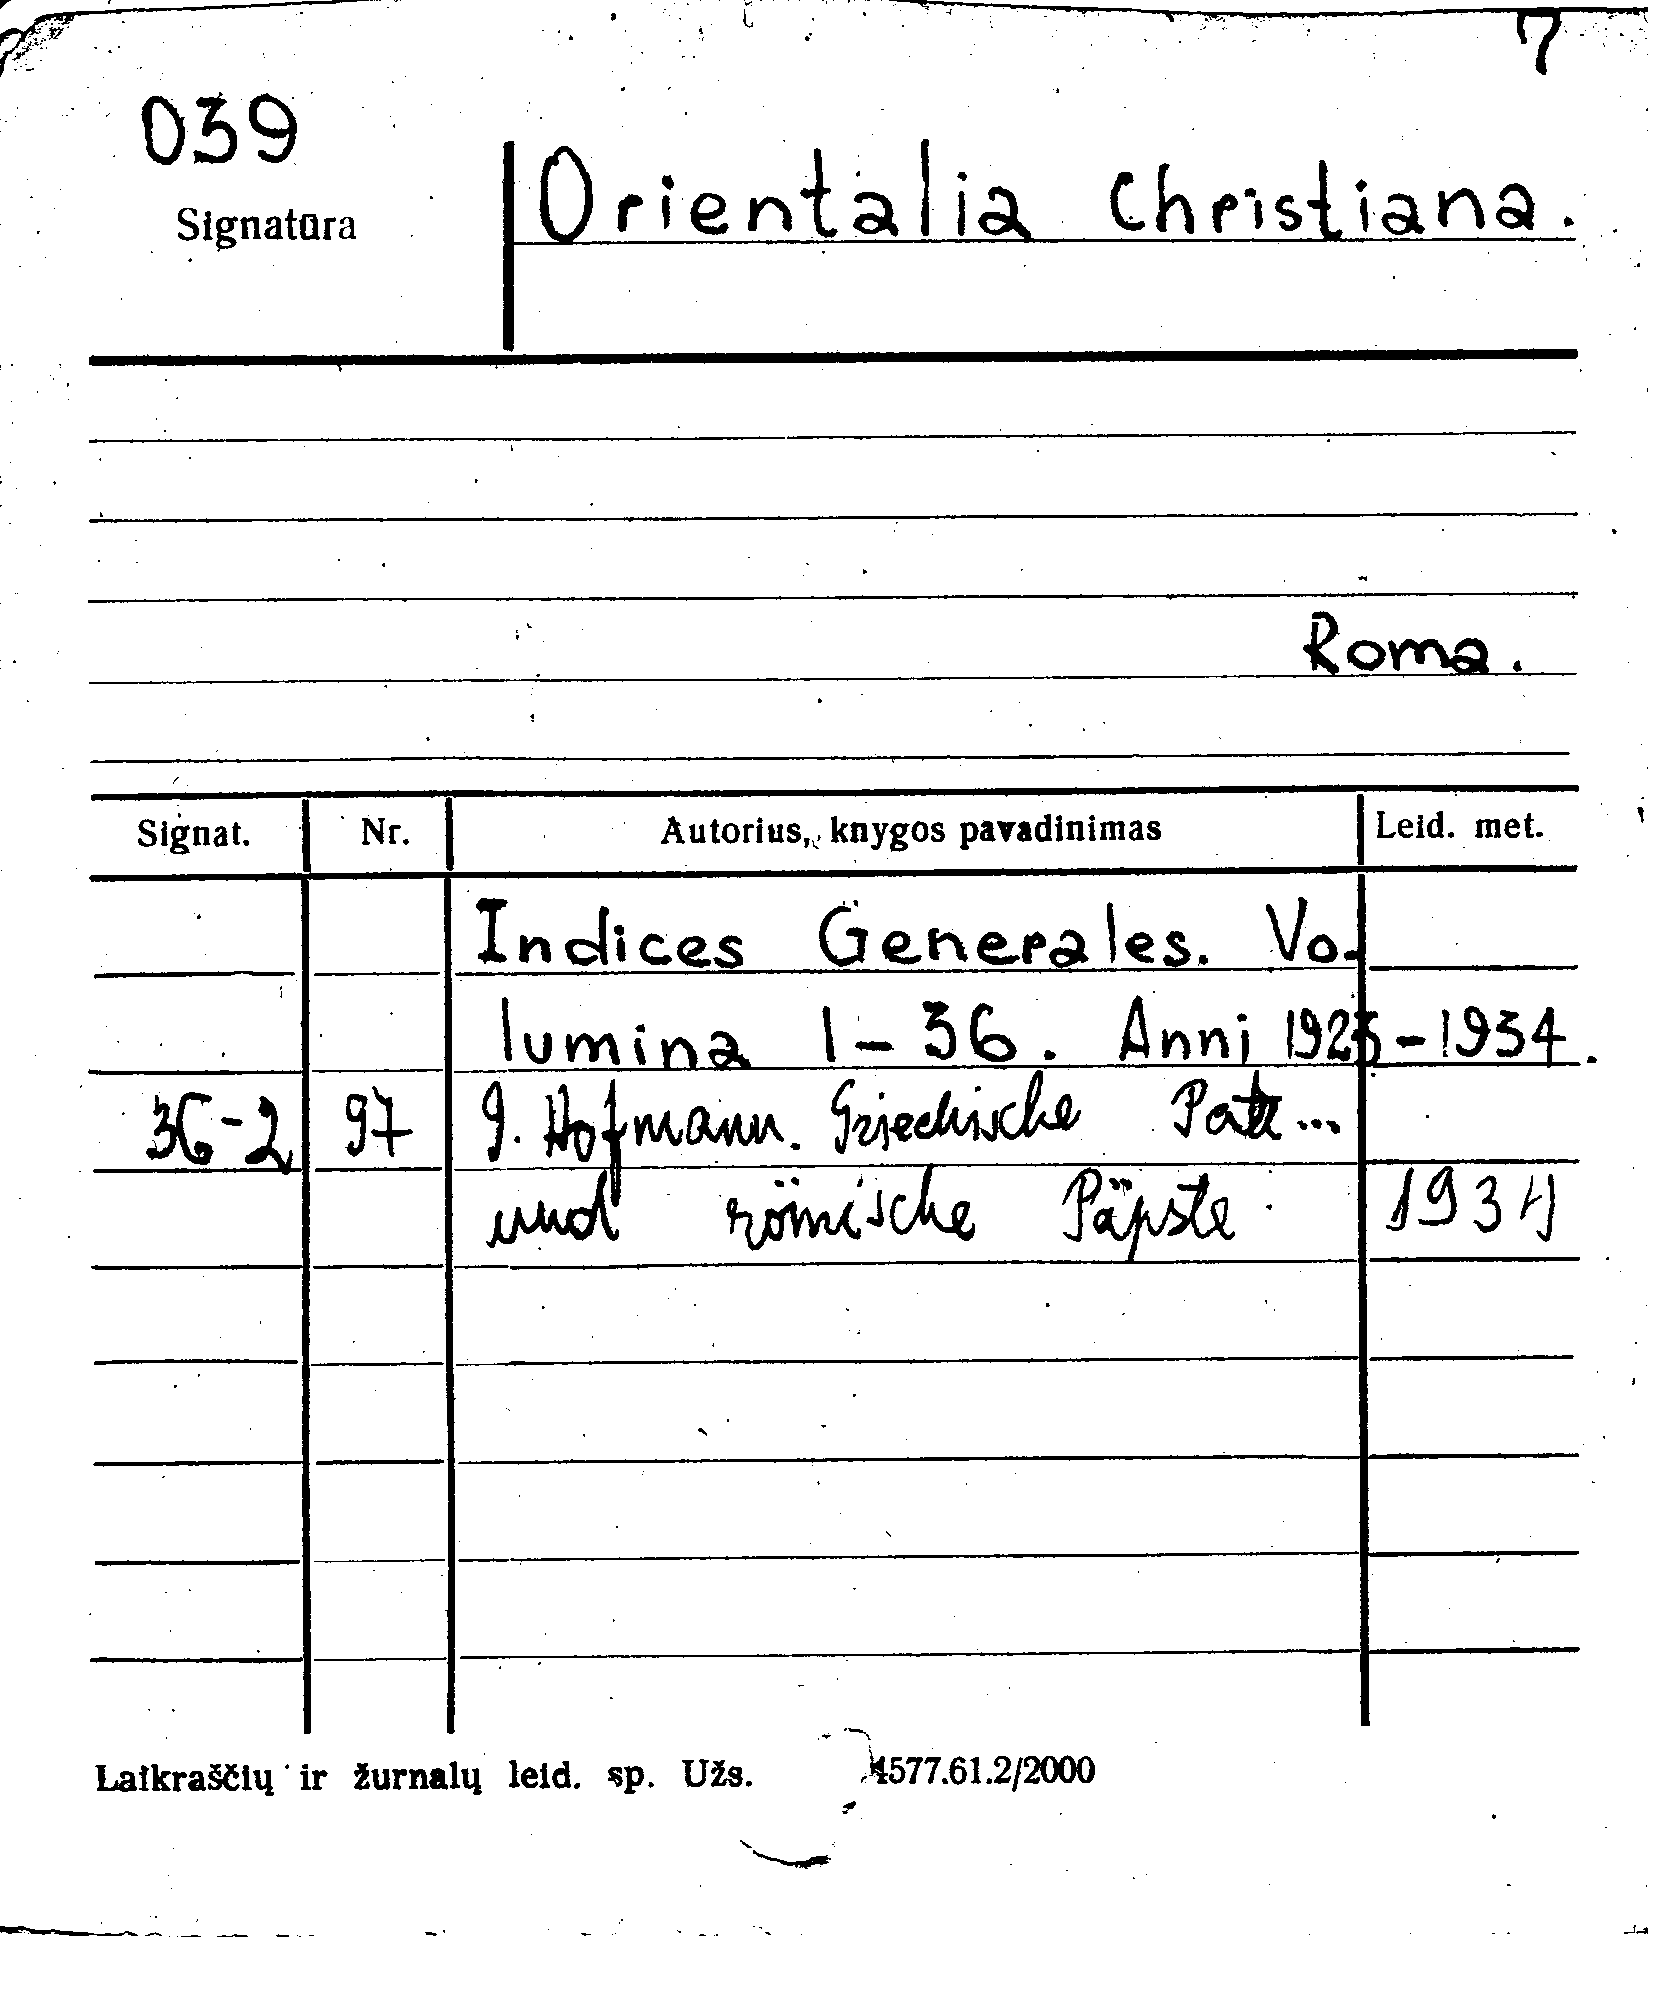 7
039
Signatūra
Orientalia Christiana.
Roma.
Signat. Nr. Autorius, knygos pavadinimas Leid. met.
Indices Generales. Vo-
lumina 1-36. Anni 1923-1934.
36-2 97 G. Hofmann. Griechische Patr...
und römische Päpste 1934
Laikraščių ir žurnalų leid. sp. Užs. 4577.61.2/2000